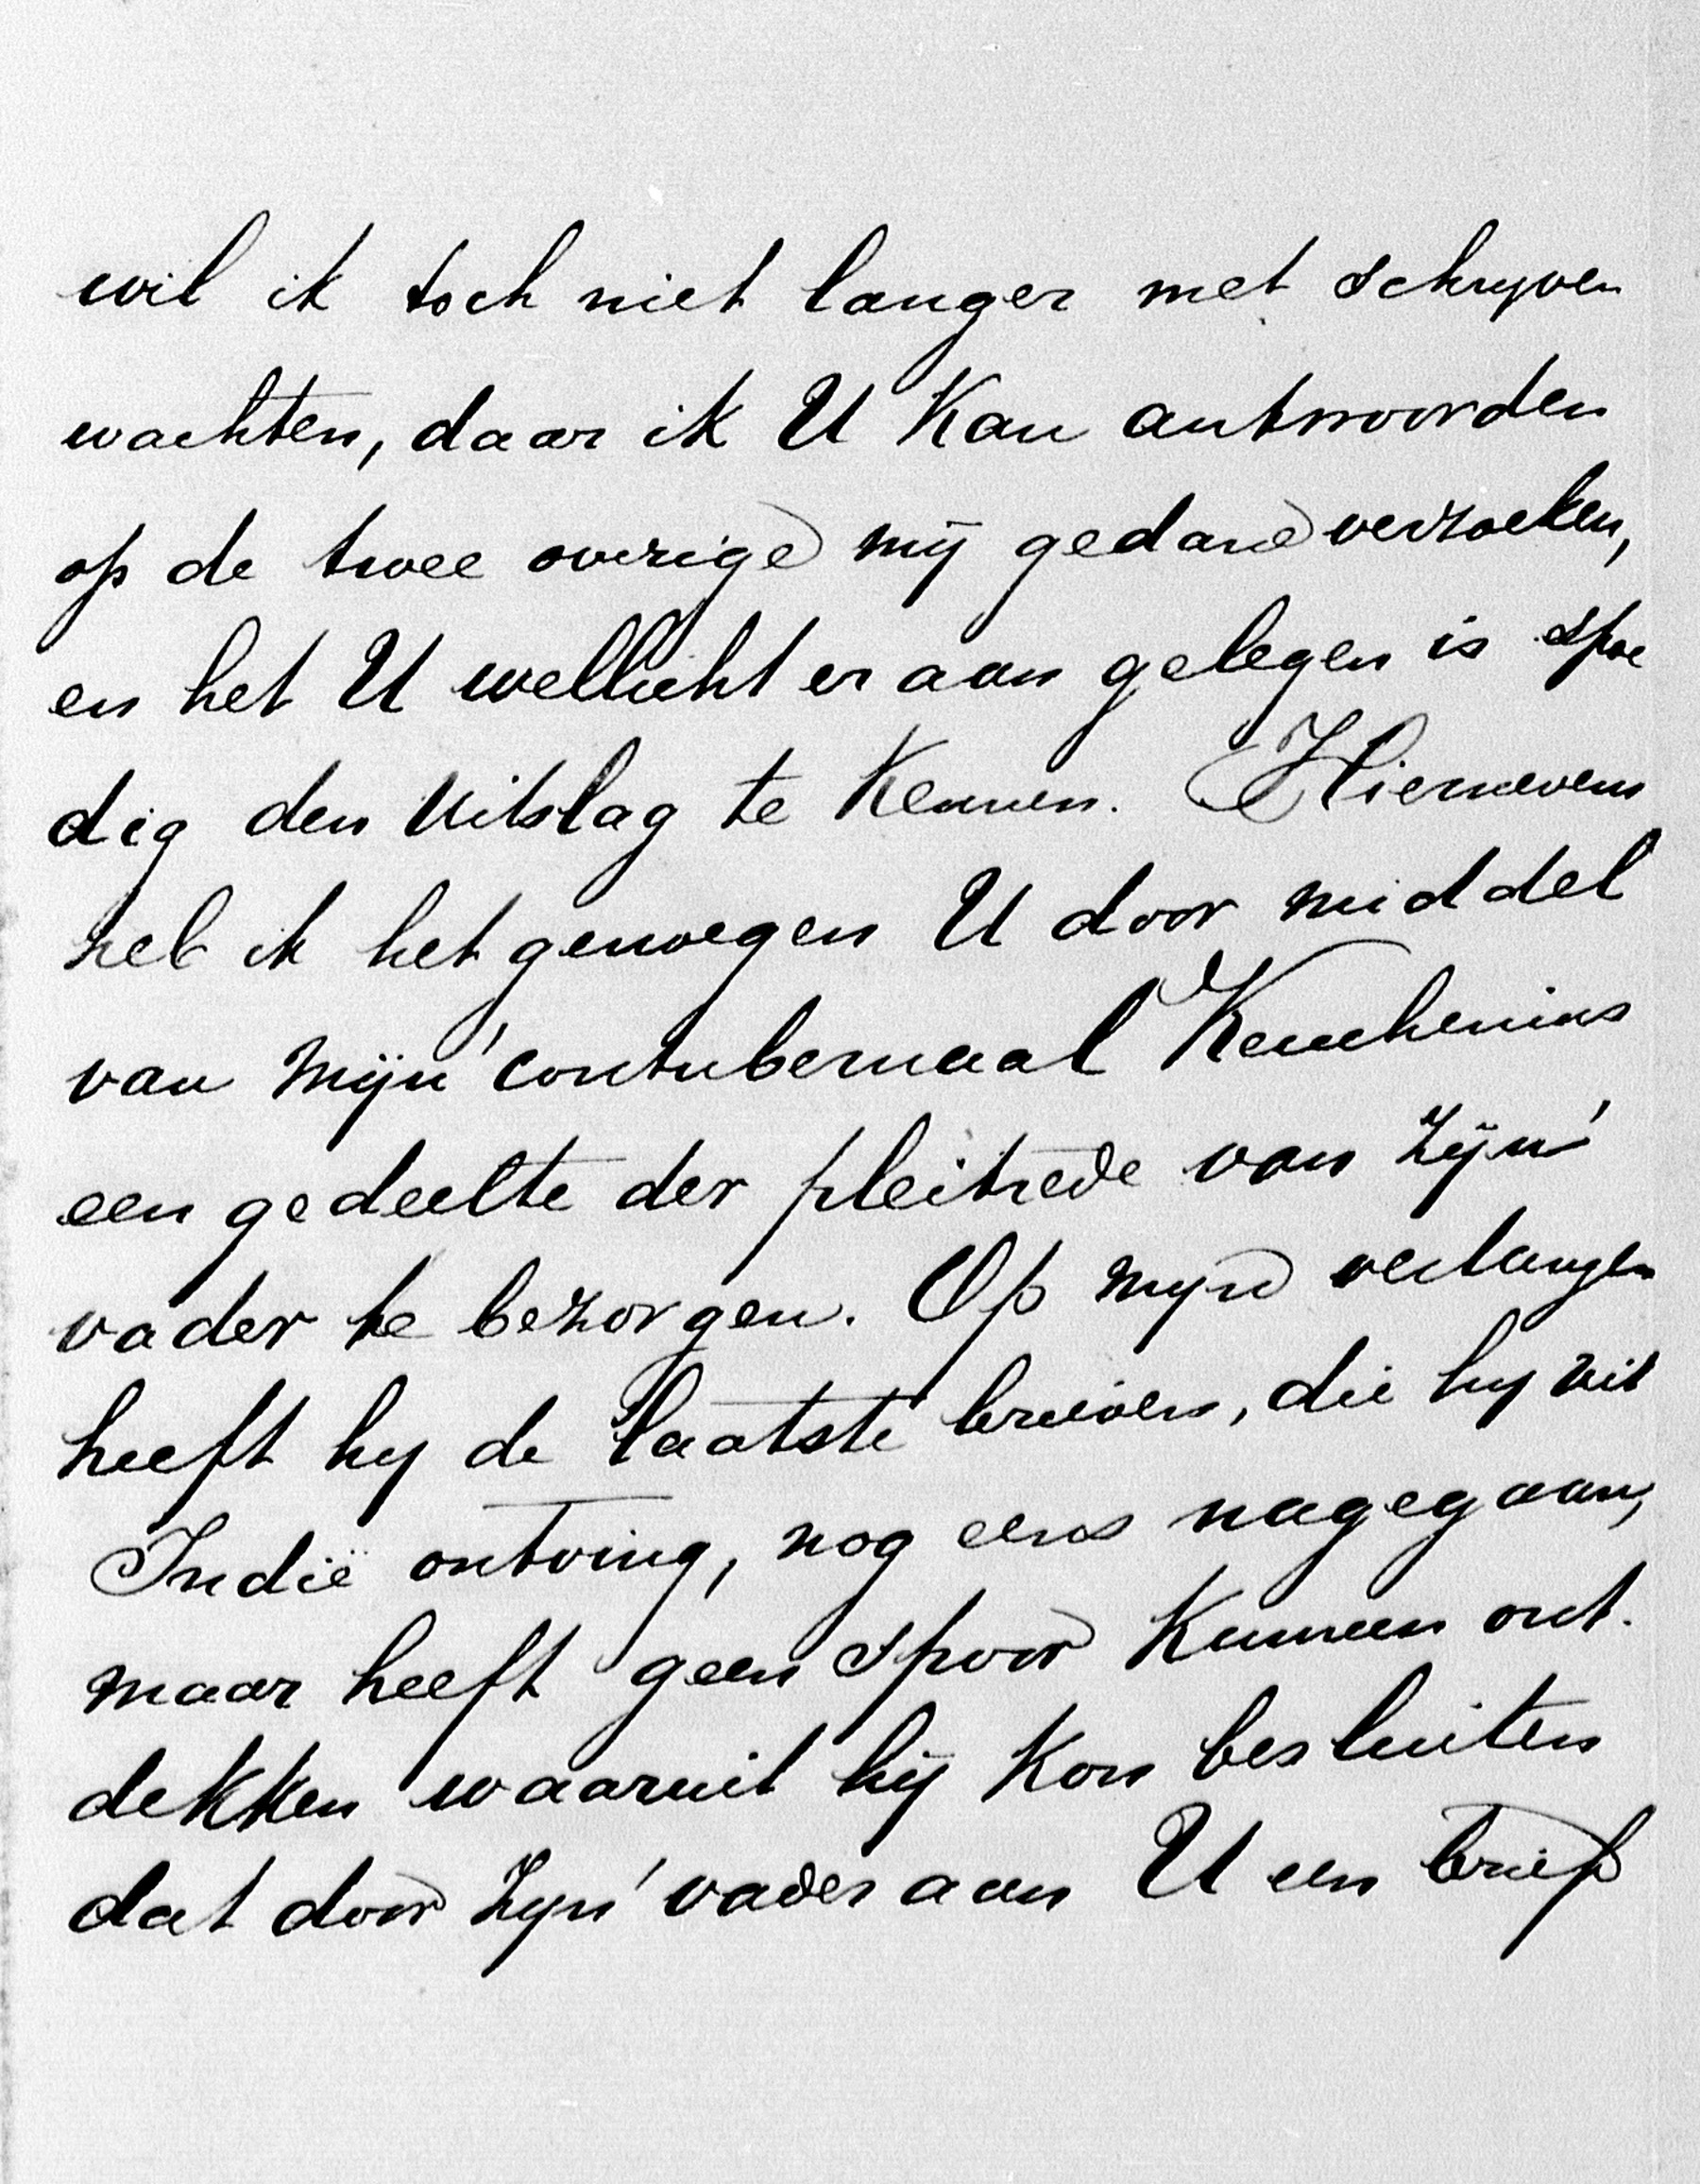 wil ik toch niet langer met schryven
wachten, daar ik U kan antwoorden
op de twee overige mij gedane verzoeken,
en het U wellicht er aan gelegen is spoe
dig den uitslag te kennen. Hiernevens
heb ik het genoegen U door middel
van mijn' contubernaal Keuchenius
een gedeelte der pleitrede van zijn'
vader te bezorgen. Op myn verlangen
heeft hy de laatste brieven, die hy uit
Indië ontving, nog eens nagegaan,
maar heeft geen spoor kunnen ont-
dekken waaruit hij kon besluiten
dat door zyn' vader aan U een brief